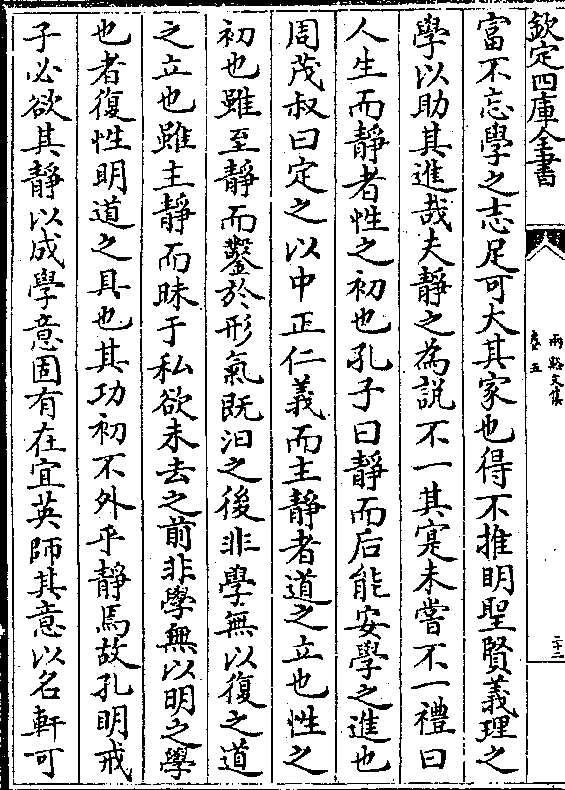 欽定四庫全書
兩谿文集
卷五
二十二
富不忘學之志足可大其家也得不推明聖賢義理之
學以助其進哉夫靜之為説不一其寔未嘗不一禮曰
人生而靜者性之初也孔子曰靜而后能安學之進也
周茂叔曰定之以中正仁義而主靜者道之立也性之
初也雖至靜而鑿於形氣既汩之後非學無以復之道
之立也雖主靜而昧于私欲未去之前非學無以明之學
也者復性明道之具也其功初不外乎靜焉故孔明戒
子必欲其靜以成學意固有在宜英師其意以名軒可